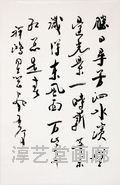 勝日尋芳泗水濱無
邊光景一時新等閒
識得東風面万紫千
红总是春
淳艺堂画廊